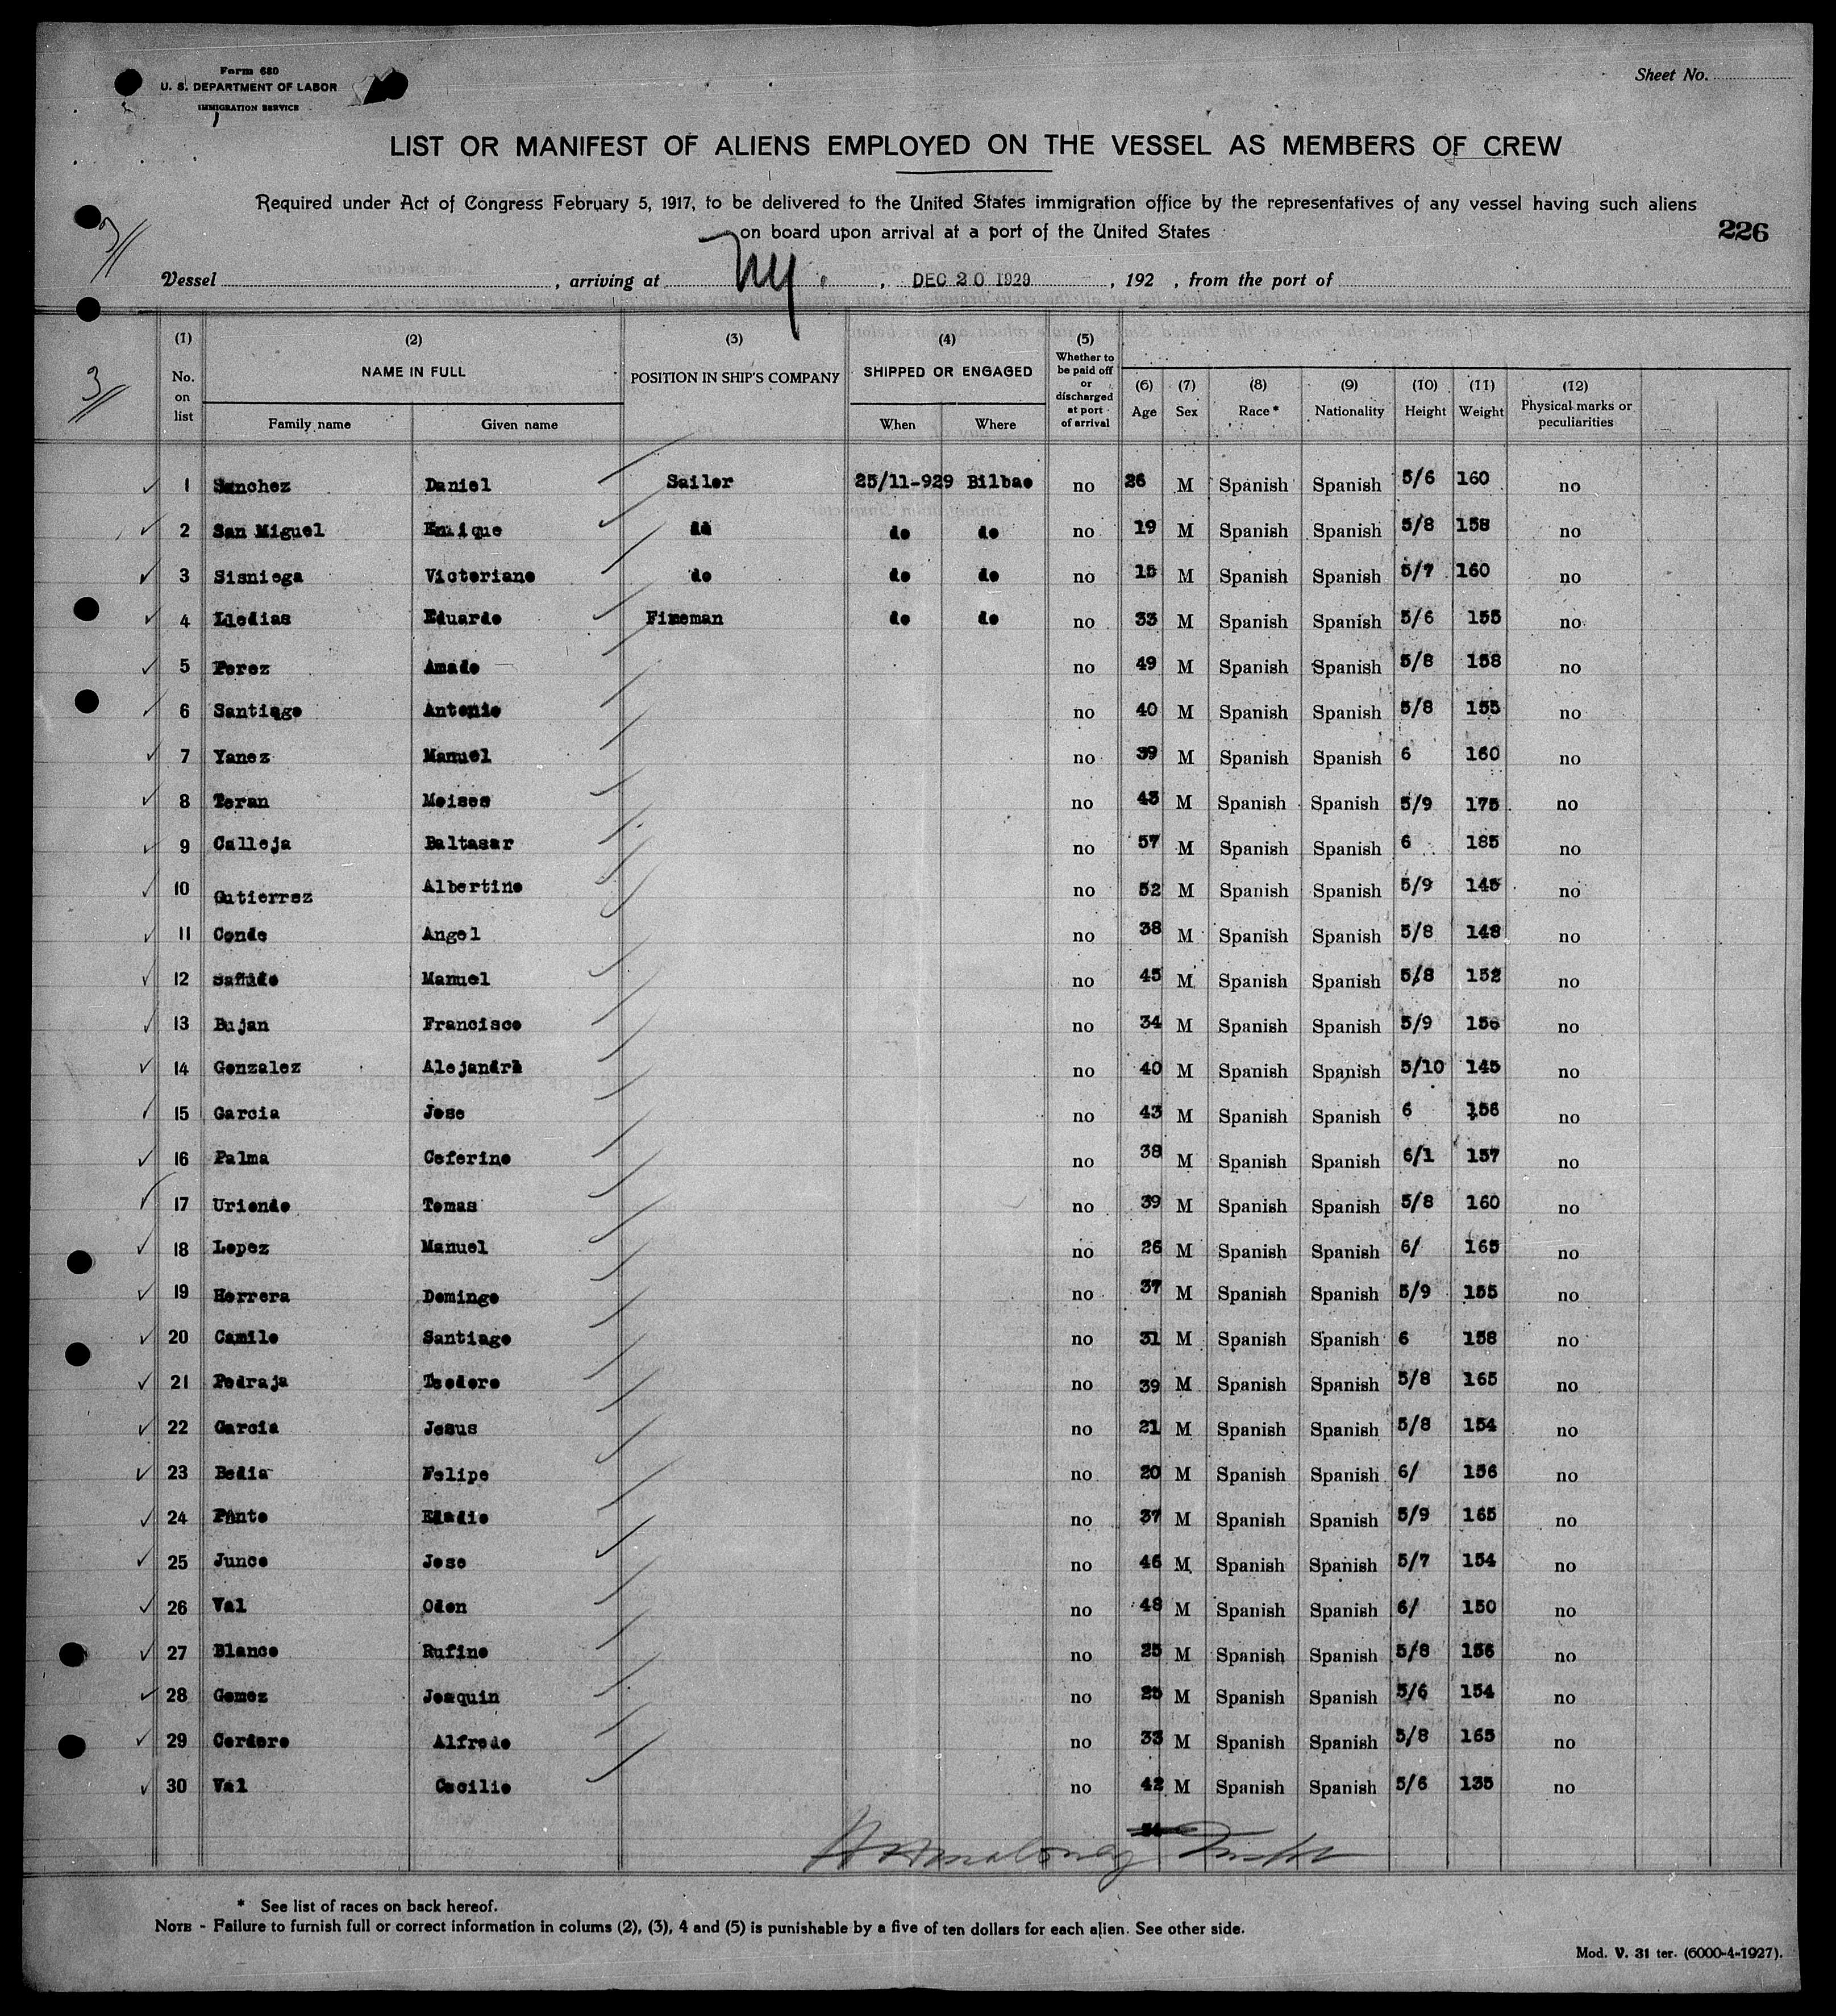 Form 680
U. S. DEPARTMENT OF LABOR
IMMIGRATION SERVICE
Sheet No.
LIST OR MANIFEST OF ALIENS EMPLOYED ON THE VESSEL AS MEMBERS OF CREW
Required under Act of Congress February 5, 1917, to be delivered to the United States immigration office by the representatives of any vessel having such aliens
on board upon arrival at a port of the United States
226
Vessel , arriving at NY. , DEC 20 1929 , 192 , from the port of
3
(1) (2) (3) (4) (5)
No. on list NAME IN FULL POSITION IN SHIP'S COMPANY SHIPPED OR ENGAGED Whether to be paid off or discharged at port of arrival (6) Age (7) Sex (8) Race * (9) Nationality (10) Height (11) Weight (12) Physical marks or peculiarities
Family name Given name When Where
1 Sanchez Daniel Sailor 25/11-929 Bilbao no 26 M Spanish Spanish 5/6 160 no
2 San Miguel Enrique do do do no 19 M Spanish Spanish 5/8 158 no
3 Sisniega Victoriano do do do no 15 M Spanish Spanish 5/7 160 no
4 Lledias Eduardo Fireman do do no 33 M Spanish Spanish 5/6 155 no
5 Perez Amado no 49 M Spanish Spanish 5/8 158 no
6 Santiago Antonio no 40 M Spanish Spanish 5/8 155 no
7 Yanez Manuel no 39 M Spanish Spanish 6 160 no
8 Teran Moises no 43 M Spanish Spanish 5/9 175 no
9 Calleja Baltasar no 57 M Spanish Spanish 6 185 no
10 Gutierrez Albertino no 52 M Spanish Spanish 5/9 145 no
11 Conde Angel no 38 M Spanish Spanish 5/8 148 no
12 Manuel no 45 M Spanish Spanish 5/8 152 no
13 Bujan Francisco no 34 M Spanish Spanish 5/9 156 no
14 Gonzalez no 40 M Spanish Spanish 5/10 145 no
15 Garcia Jose no 43 M Spanish Spanish 6 156 no
16 Palma Ceferino no 38 M Spanish Spanish 6/1 157 no
17 Uriondo Tomas no 39 M Spanish Spanish 5/8 160 no
18 Lopez Manuel no 26 M Spanish Spanish 6/ 165 no
19 Herrera Domingo no 37 M Spanish Spanish 5/9 155 no
20 Camilo Santiago no 31 M Spanish Spanish 6 158 no
21 Pedraja Teodoro no 39 M Spanish Spanish 5/8 165 no
22 Garcia Jesus no 21 M Spanish Spanish 5/8 154 no
23 Bedia Felipe no 20 M Spanish Spanish 6/ 156 no
24 Eladio no 37 M Spanish Spanish 5/9 165 no
25 Junco Jose no 46 M Spanish Spanish 5/7 154 no
26 Val Odon no 48 M Spanish Spanish 6/ 150 no
27 Blanco Rufino no 25 M Spanish Spanish 5/8 156 no
28 Gomez Joaquin no 25 M Spanish Spanish 5/6 154 no
29 Cordero Alfredo no 33 M Spanish Spanish 5/8 165 no
30 Val Cecilio no 42 M Spanish Spanish 5/6 135 no
* See list of races on back hereof.
NOTE - Failure to furnish full or correct information in colums (2), (3), 4 and (5) is punishable by a five of ten dollars for each alien. See other side.
Mod. V. 31 ter. (6000-4-1927).